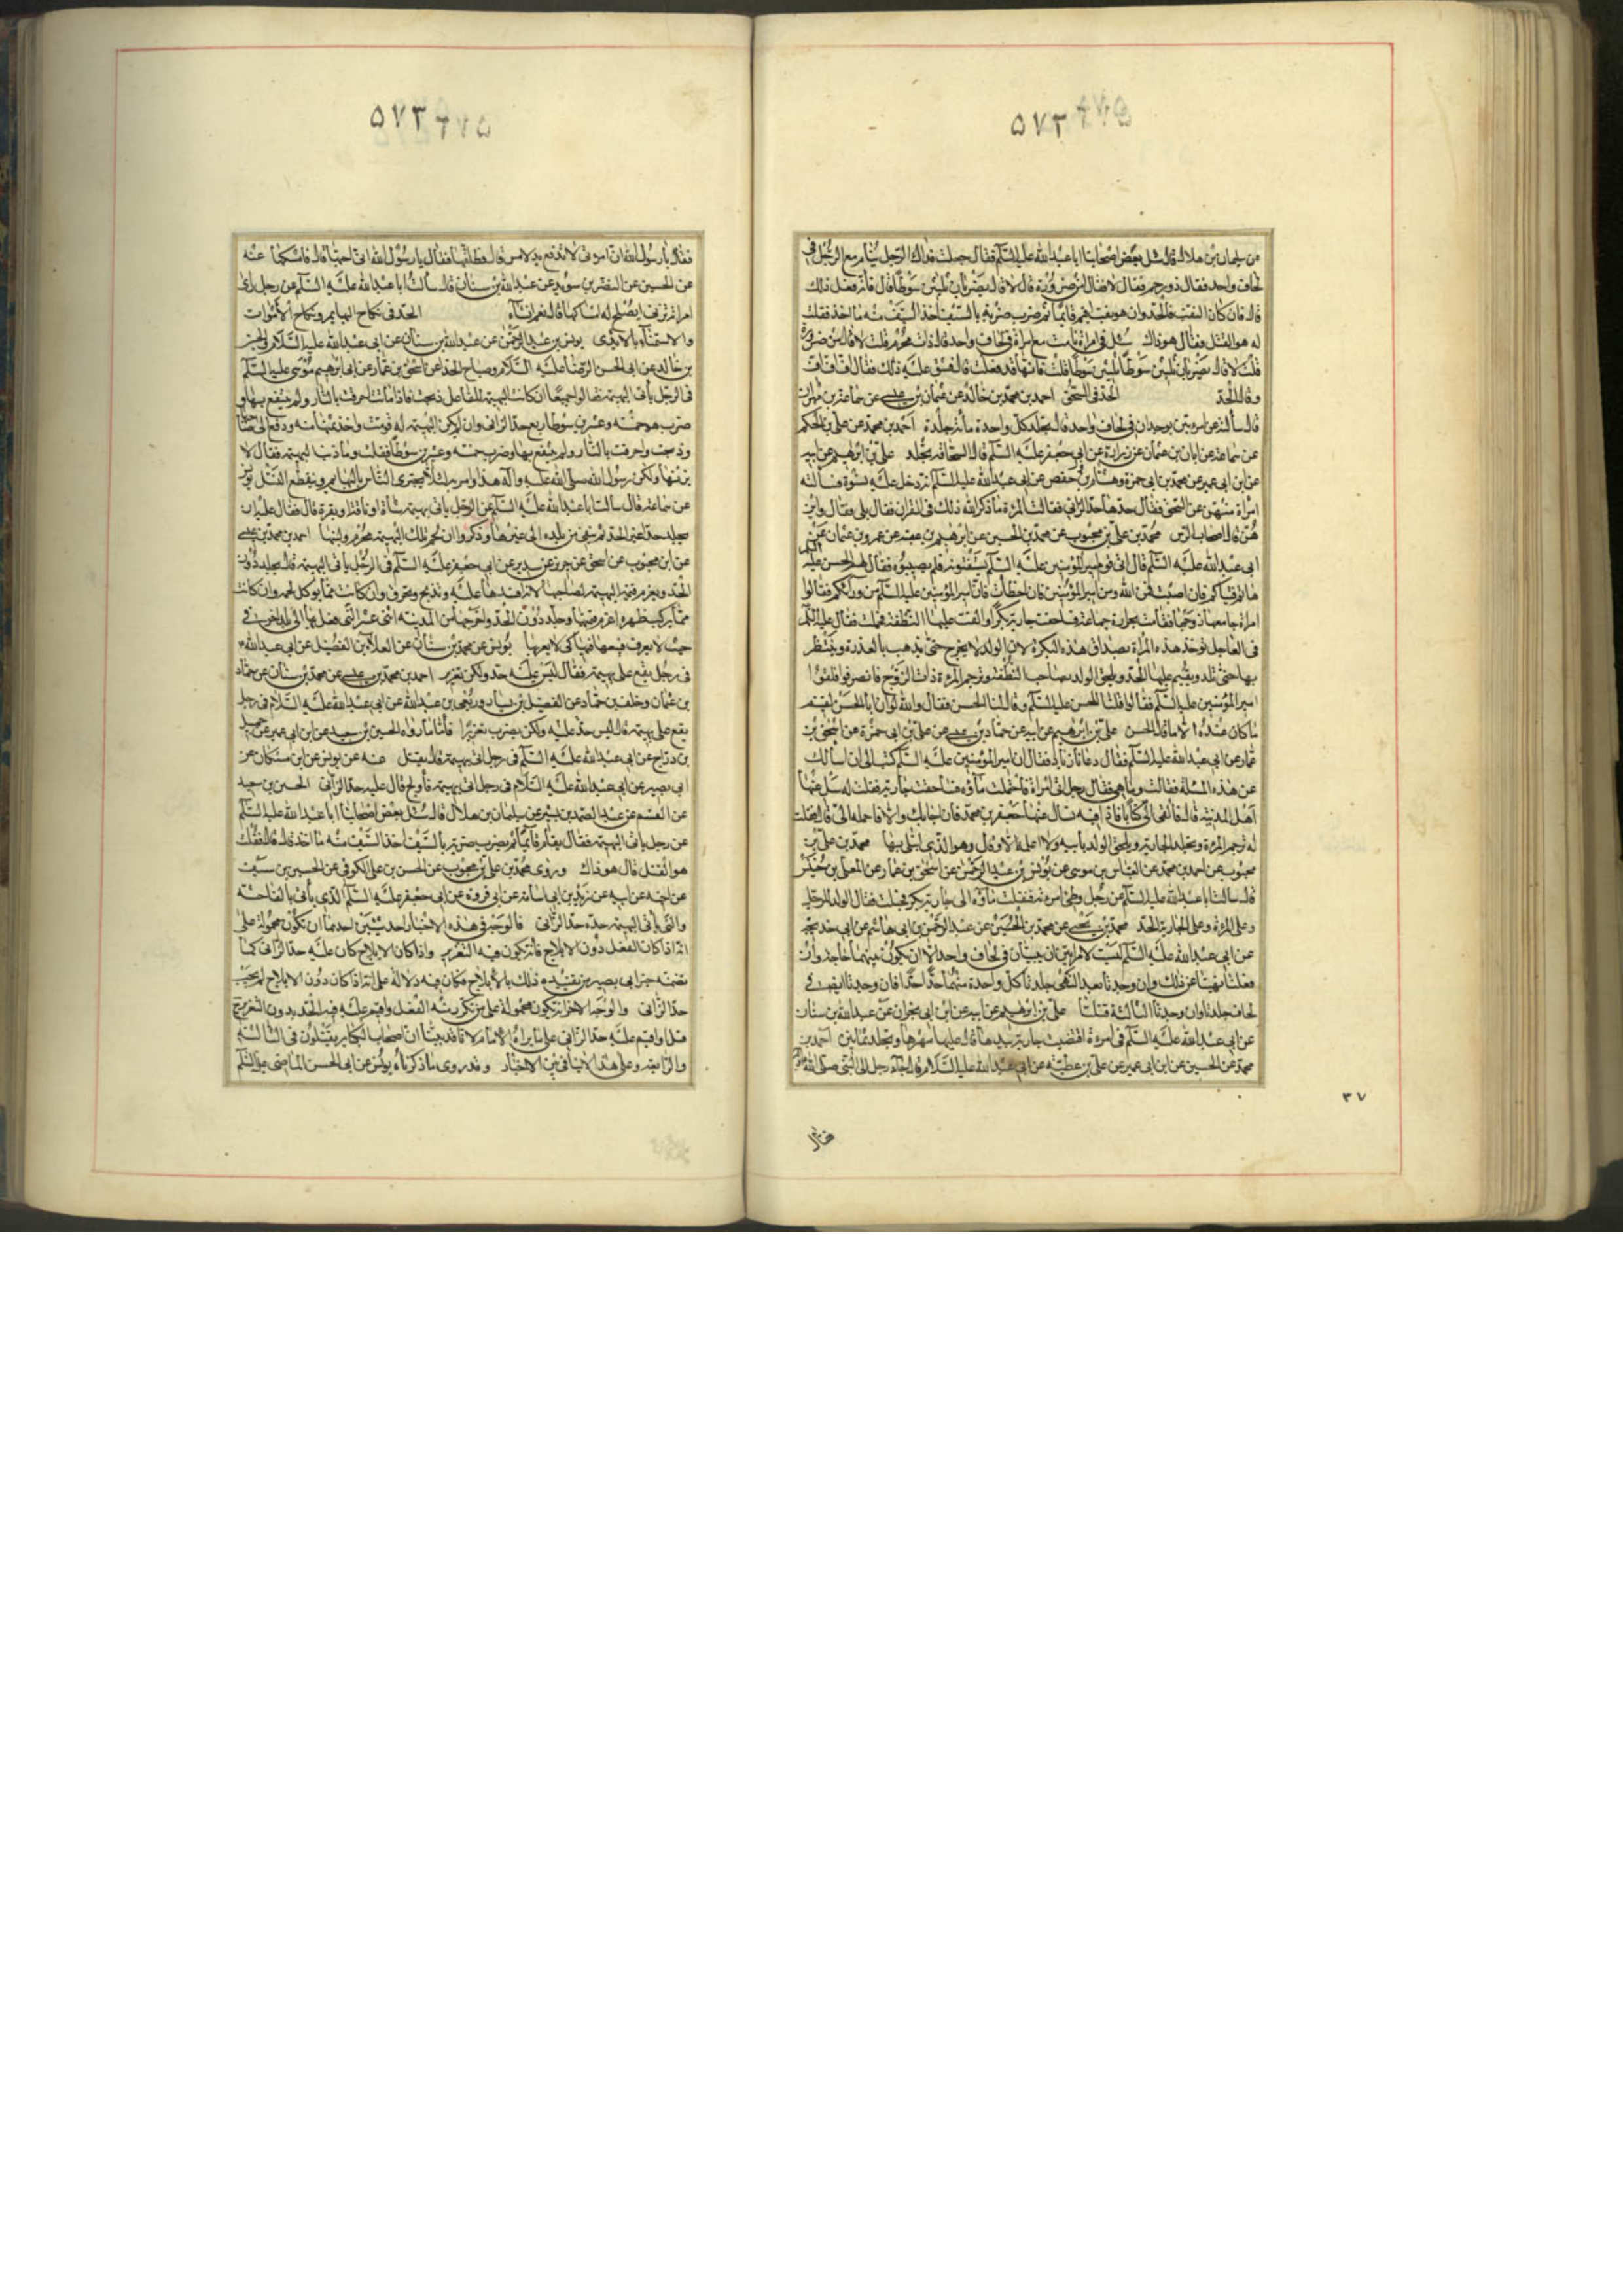 ۵۷۲
عن سليمان بن هلال قال سئل بعض اصحابنا ابا عبدالله عليه السلم فقال جعلت فداك الرجل ينام مع الرجل فى
لحاف واحد فقال ذو رحم فقال لا فقال أمن ضرورة قال لا قال يضربان ثلثين سوطا قال فانه فعل ذلك
قال فان كان الثقب فالحد وان هو ثقب اقيم قائما ثم ضرب ضربة بالسيف اخذ السيف منه ما اخذ فقلت
له هو القتل فقال هو ذاك سئل فى امراة نامت مع امراة فى لحاف واحد قال ذات محرم قلت لا قال من ضرورة
قلت لا قال تضربان ثلثين سوطا ثلثين سوطا قلت فانها قد فعلت قال فشق عليه ذلك فقال اف اف اف
وقال الحد الحد فى السحق احمد بن محمد بن خالد عن عثمان بن عيسى عن سماعة بن مهران
قال سألته عن امرءتين توجدان فى لحاف واحد قال تجلد كل واحدة مأئة جلدة احمد بن محمد عن على بن الحكم
عن ابان بن عثمان عن زرارة عن ابى جعفر عليه السلم قال السحاقة تجلد على بن ابرهيم عن ابيه
عن ابن ابى عمير عن محمد بن ابى حمزة وهشام وحفص عن ابى عبدالله عليه السلم انه دخل عليه نسوة فسالته
امراة منهن عن السحق فقال حدها حد الزانى فقالت المرءة ما ذكر الله ذلك فى القران فقال بلى فقالت واين
هن قال اصحاب الرس محمد بن على بن محبوب عن محمد بن الحسين عن ابرهيم بن عقبه عن عمرو بن عثمان عن
ابى عبدالله عليه السلم قال اتى قوم امير المؤمنين عليه السلم يستفتونه فلم يصيبوه فقال لهم الحسن عليه
هاتوا فتياكم فان اصبت فمن الله ومن امير المؤمنين فان اخطأت فان امير المؤمنين عليه السلم من ورائكم فقالوا
امراة جامعها زوجها فقامت بحرارة جماعه فساحقت جارية بكرا والقت عليها النطفة فحملت فقال عليه السلم
فى العاجل تؤخذ هذه المراة بصداق هذه البكرة لان الولد لا يخرج حتى يذهب بالعذرة وينتظر
بها حتى تلد ويقيم عليها الحد ويلحق الولد بصاحب النطفة وترجم المرءة ذات الزوج فانصرفوا فلقوا
امير المؤمنين عليه السلم فقالوا قلنا للحسن عليه السلم وقال لنا الحسن فقال والله لو ان ابا الحسن لقيتم
ما كان عنده الا ما قال الحسن على بن ابرهيم عن ابيه عن حماد بن عيسى عن على بن ابى حمزة عن اسحق بن
عمار عن ابى عبدالله عليه السلم فقال دعانا زياد فقال ان امير المؤمنين عليه السلم كتب الى ان اسألك
عن هذه المسئلة فقالت وما هى فقال رجل اتى امراة فاحتملت ماؤه فساحقت جارية فقلت له سل عنها
اهل المدينة قال فالقى الى كتابا فاذا فيه سل عنها جعفر بن محمد فان اجابك والا فاحمله الى قال فقلت
له ترجم المرءة وتجلد الجارية ويلحق الولد بأبيه ولا اعلمه الا وقال وهو الذى ابتلى بها محمد بن على بن
محبوب عن احمد بن محمد عن العباس بن موسى عن يونس بن عبد الرحمن عن اسحق بن عمار عن المعلى بن خنيس
قال سالت ابا عبدالله عليه السلم عن رجل وطئ امرءته فنقلت ماؤه الى جارية بكر فحبلت فقال الولد للرجل
وعلى المرءة وعلى الجارية الحد محمد بن يحيى عن محمد بن الحسين عن عبد الرحمن بن ابى هاشم عن ابى خديجة
عن ابى عبدالله عليه السلم ليس لامراتين ان تبيتان فى لحاف واحد الا ان يكون بينهما حاجز وان
فعلتا نهيتا عن ذلك وان وجدتا بعد النهى جلدتا كل واحدة منهما حدا حدا فان وجدتا ايضا فى
لحاف جلدتا وان وجدتا الثالثة قتلتا على بن ابرهيم عن ابيه عن ابن ابى نجران عن عبدالله بن سنان
عن ابى عبدالله عليه السلم فى امرءة افتضت جارية بيدها قال عليها مهرها وتجلد ثمانين احمد بن
محمد عن الحسين عن ابن ابى عمير عن على بن عطيه عن ابى عبدالله عليه السلام قال جاء رجل الى النبى صلى الله
فقال
۳۷
۵۷۳
فقال يا رسول الله ان امرءتى لا تدفع يد لامس قال فطلقها فقال يا رسول الله انى احبها قال فامسكها عنه
عن الحسين عن النضر بن سويد عن عبدالله بن سنان قال سألت ابا عبدالله عليه السلم عن رجل رأى
امراته تزنى ايصلح له امساكها قال نعم ان شاء الحد فى نكاح البهايم ونكاح الاموات
والاستمناء بالايدى يونس بن عبد الرحمن عن عبدالله بن سنان عن ابى عبدالله عليه السلام والحسين
بن خالد عن ابى الحسن الرضا عليه السلام وصباح الحذاء عن اسحق بن عمار عن ابى ابرهيم موسى عليه السلم
فى الرجل يأتى البهيمة فقالوا جميعا ان كانت البهيمة للفاعل ذبحت فاذا ماتت احرقت بالنار ولم ينتفع بها و
ضرب هو خمسة وعشرين سوطا ربع حد الزانى وان لم يكن البهيمة له قومت واخذ ثمنها منه ودفع الى صاحبها
وذبحت واحرقت بالنار ولم ينتفع بها وضرب خمسة وعشرين سوطا فقلت وما ذنب البهيمة فقال لا
ذنب لها ولكن رسول الله صلى الله عليه وآله فعل هذا وامر به لئلا يجترى الناس بالبهائم وينقطع النسل يونس
عن سماعة قال سالت ابا عبدالله عليه السلم عن الرجل يأتى بهيمة شاة او ناقة او بقرة قال فقال عليه ان
يجلد حدا غير الحد ثم ينفى من بلده الى غيرها وذكروا ان لحم تلك البهيمة محرم ولبنها احمد بن محمد بن عيسى
عن ابن محبوب عن اسحق عن حريز عن سدير عن ابى جعفر عليه السلم فى الرجل يأتى البهيمة قال يجلد دون
الحد ويغرم قيمة البهيمة لصاحبها لانه افسدها عليه وتذبح وتحرق وان كانت مما يوكل لحمه وان كانت
مما يركب ظهره اغرم قيمتها وجلد دون الحد واخرجها من المدينه التى فعل بها الى بلاد اخرى
حيث لا يعرف فيبيعها فيها كى لا يعير بها يونس عن محمد بن سنان عن العلاء بن الفضيل عن ابى عبدالله
فى رجل يقع على بهيمة فقال ليس عليه حد ولكن تعزير احمد بن محمد بن عيسى عن محمد بن سنان عن حماد
بن عثمان وخلف بن حماد عن الفضيل بن يسار وربعى بن عبدالله عن ابى عبدالله عليه السلام فى رجل
يقع على بهيمة قال ليس حد عليه ولكن يضرب تعزيرا فاما ما رواه الحسين بن سعيد عن ابن ابى عمير عن جميل
بن دراج عن ابى عبدالله عليه السلم فى رجل اتى بهيمة قال يقتل عنه عن يونس عن ابن مسكان عن
ابى بصير عن ابى عبدالله عليه السلام فى رجل اتى بهيمة فأولج قال عليه حد الزانى الحسين بن سعيد
عن القسم عن عبد الصمد بن بشير عن سليمان بن هلال قال سئل بعض اصحابنا ابا عبدالله عليه السلم
عن رجل يأتى البهيمة فقال يقام قائما ثم يضرب ضربة بالسيف اخذ السيف منه ما اخذ قال فقلت
هو القتل قال هو ذاك وروى محمد بن على بن محبوب عن الحسن بن على الكوفى عن الحسين بن سيف
عن اخيه عن ابيه عن زيد بن ابى اسامة عن ابى فروة عن ابى جعفر عليه السلم الذى يأتى بالفاحشة
والذى يأتى البهيمة حده حد الزانى فالوجه فى هذه الاخبار احد شيئين احدهما ان تكون محمولة على
انه اذا كان الفعل دون الايلاج فانه يكون فيه التعزير واذا كان الايلاج كان عليه حد الزانى كما
تضمنه خبر ابى بصير من تقييده ذلك بالايلاج فكان فيه دلالة على انه اذا كان دون الايلاج لم يجب
حد الزانى والوجه الاخر ان يكون محمولة على من تكرر منه الفعل واقيم عليه فيه الحد بدون التعزير
قتل او اقيم عليه حد الزانى على ما يراه الامام لانا قد بينا ان اصحاب الكباير يقتلون فى الثالثة
والرابعه وعلى هذا لا تنافى بين الاخبار وقد روى ما ذكرناه يونس عن ابى الحسن الماضى عليه السلم